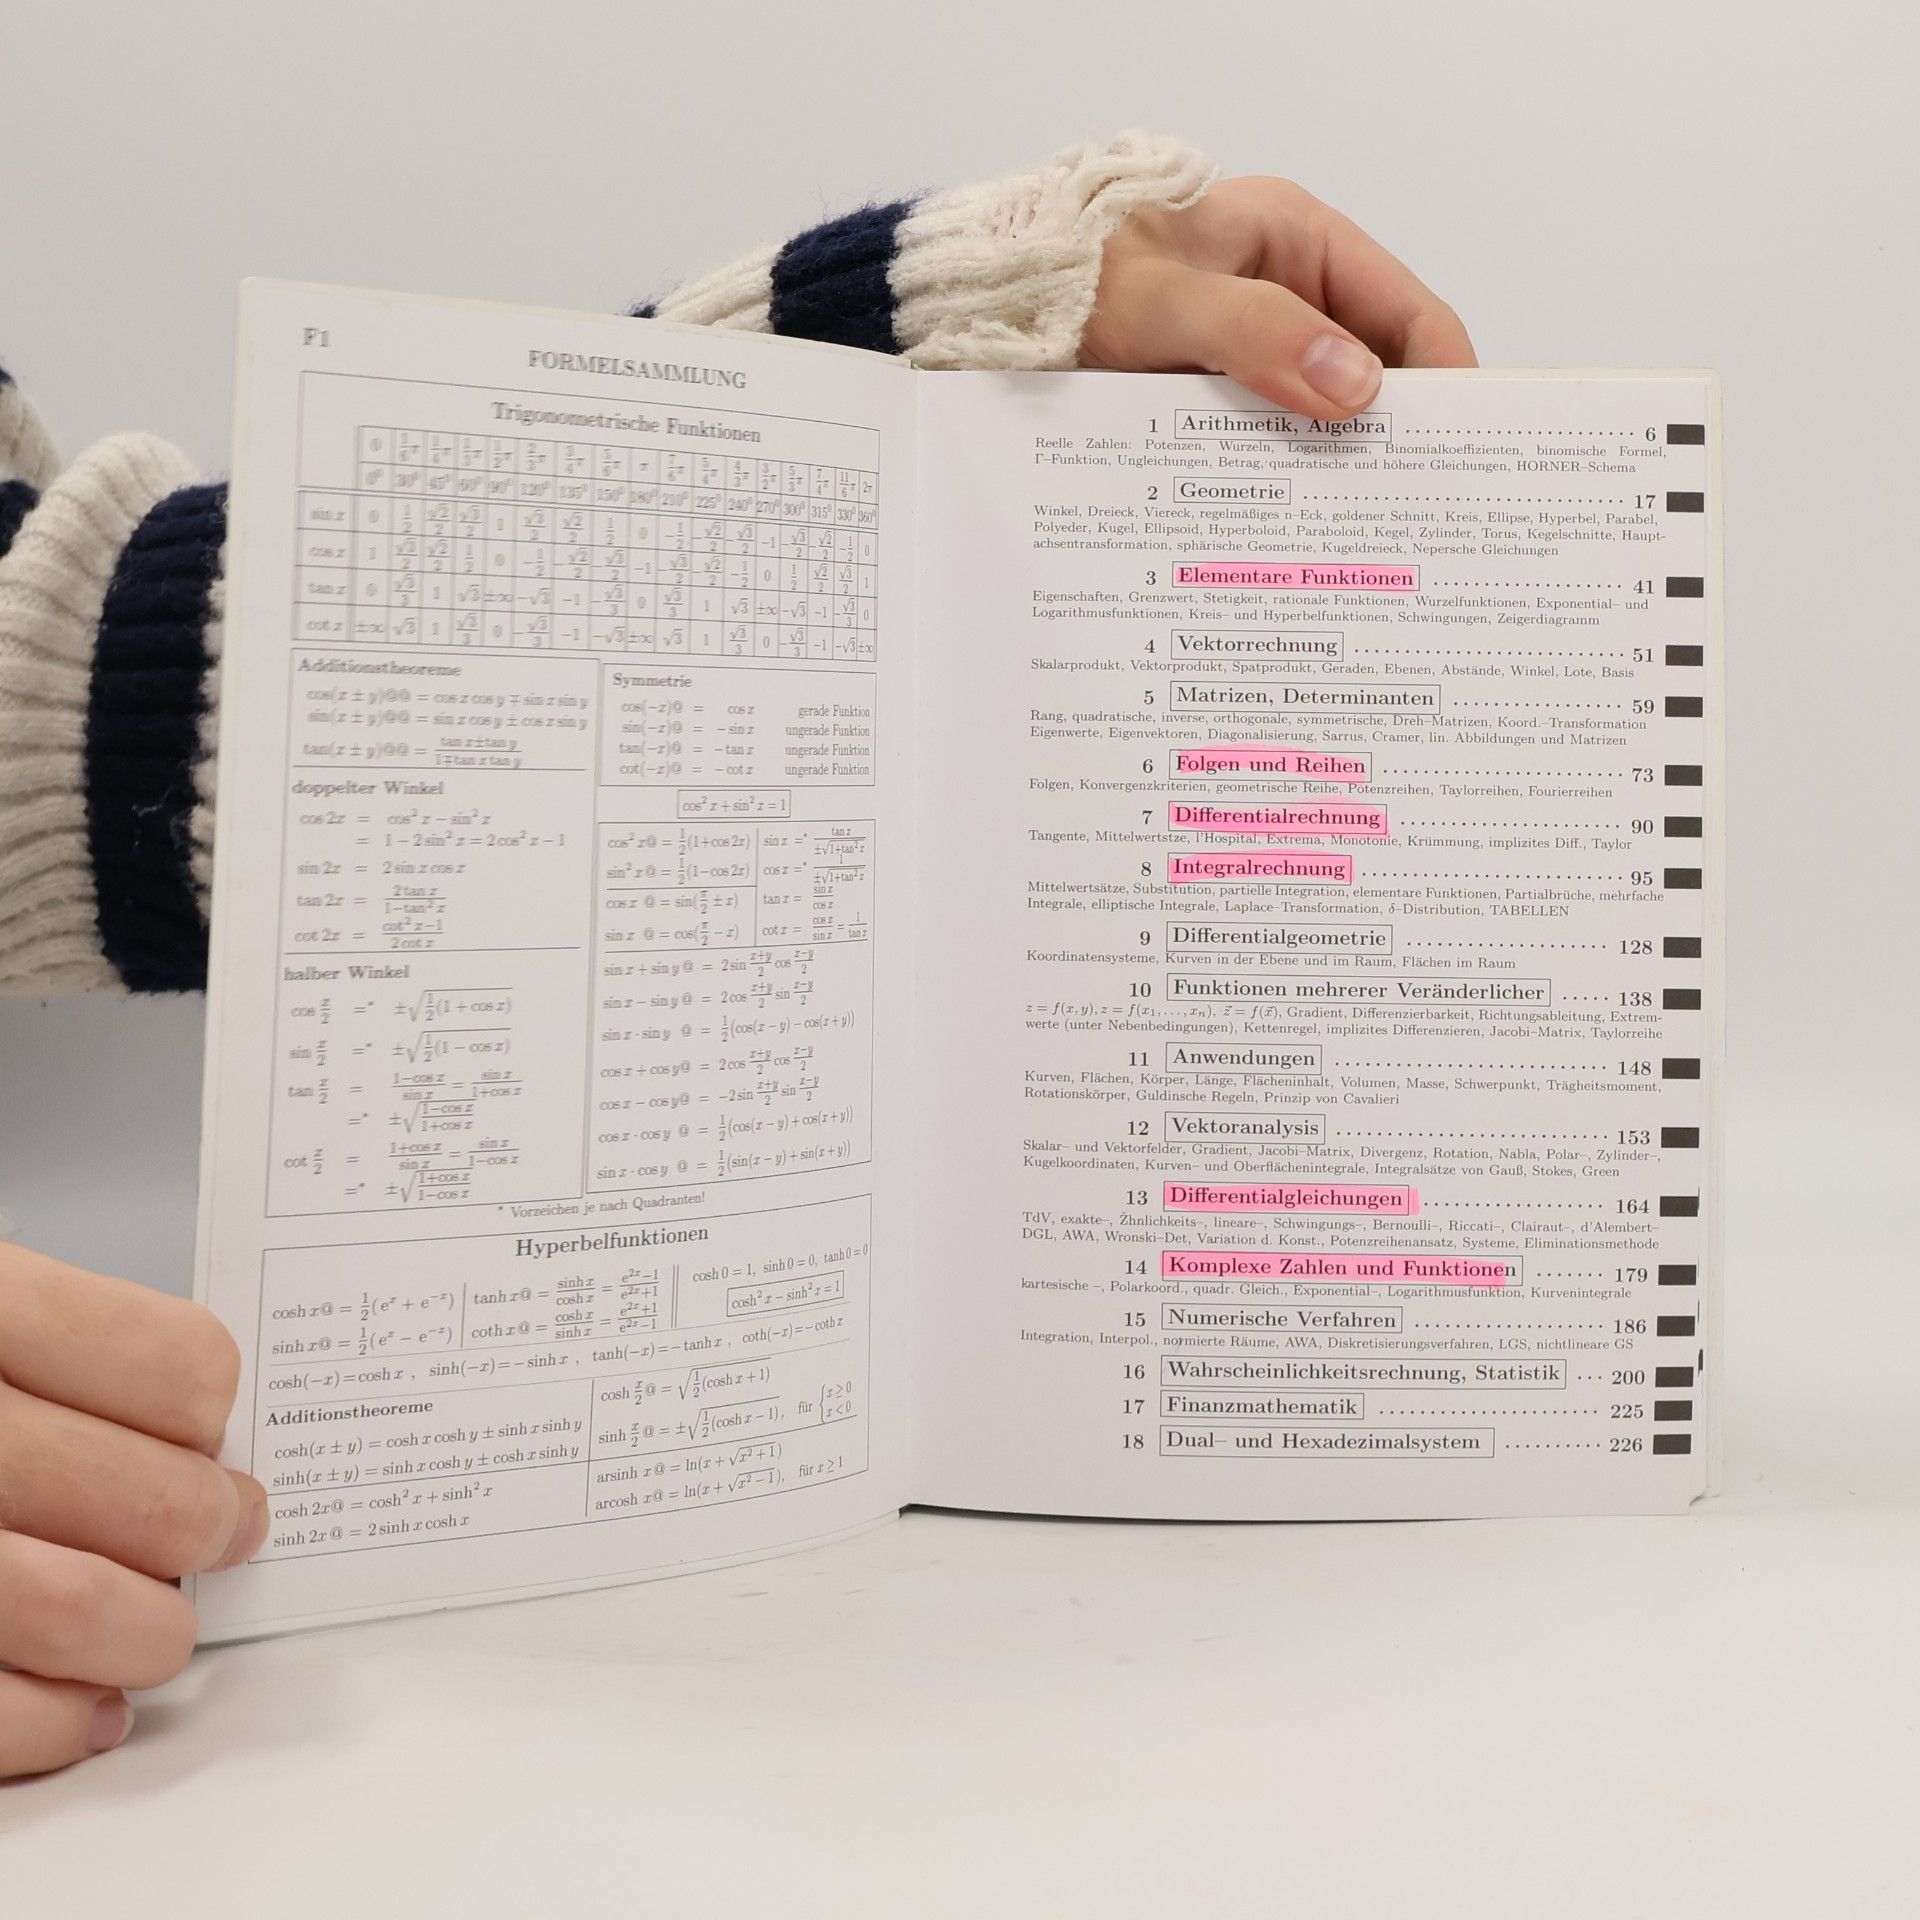 F1
FORMELSAMMLUNG
Trigonometrische Funktionen
0 1/6π 1/4π 1/3π 1/2π 2/3π 3/4π 5/6π π 7/6π 5/4π 4/3π 3/2π 5/3π 7/4π 11/6π 2π
0⁰ 30⁰ 45⁰ 60⁰ 90⁰ 120⁰ 135⁰ 150⁰ 180⁰ 210⁰ 225⁰ 240⁰ 270⁰ 300⁰ 315⁰ 330⁰ 360⁰
sin x 0 1/2 √2/2 √3/2 1 √3/2 √2/2 1/2 0 −1/2 −√2/2 −√3/2 −1 −√3/2 −√2/2 −1/2 0
cos x 1 √3/2 √2/2 1/2 0 −1/2 −√2/2 −√3/2 −1 −√3/2 −√2/2 −1/2 0 1/2 √2/2 √3/2 1
tan x 0 √3/3 1 √3 ±∞ −√3 −1 −√3/3 0 √3/3 1 √3 ±∞ −√3 −1 −√3/3 0
cot x ±∞ √3 1 √3/3 0 −√3/3 −1 −√3 ±∞ √3 1 √3/3 0 −√3/3 −1 −√3 ±∞
Additionstheoreme
cos(x ± y)@@ = cos x cos y ∓ sin x sin y
sin(x ± y)@@ = sin x cos y ± cos x sin y
tan(x ± y)@@ = (tan x±tan y)/(1∓tan x tan y)
doppelter Winkel
cos 2x = cos² x − sin² x
= 1 − 2 sin² x = 2 cos² x − 1
sin 2x = 2 sin x cos x
tan 2x = (2 tan x)/(1−tan² x)
cot 2x = (cot² x−1)/(2 cot x)
halber Winkel
cos x/2 =* ±√(1/2(1 + cos x))
sin x/2 =* ±√(1/2(1 − cos x))
tan x/2 = (1−cos x)/(sin x) = (sin x)/(1+cos x)
=* ±√((1−cos x)/(1+cos x))
cot x/2 = (1+cos x)/(sin x) = (sin x)/(1−cos x)
=* ±√((1+cos x)/(1−cos x))
Symmetrie
cos(−x)@ = cos x gerade Funktion
sin(−x)@ = − sin x ungerade Funktion
tan(−x)@ = − tan x ungerade Funktion
cot(−x)@ = − cot x ungerade Funktion
cos² x + sin² x = 1
cos² x@ = 1/2(1+cos 2x) sin x =* (tan x)/(±√(1+tan² x))
sin² x@ = 1/2(1−cos 2x) cos x =* 1/(±√(1+tan² x))
cos x @ = sin(π/2 ± x) tan x = (sin x)/(cos x)
sin x @ = cos(π/2 − x) cot x = (cos x)/(sin x) = 1/(tan x)
sin x + sin y @ = 2 sin (x+y)/2 cos (x−y)/2
sin x − sin y @ = 2 cos (x+y)/2 sin (x−y)/2
sin x · sin y @ = 1/2(cos(x − y) − cos(x + y))
cos x + cos y@ = 2 cos (x+y)/2 cos (x−y)/2
cos x − cos y@ = −2 sin (x+y)/2 sin (x−y)/2
cos x · cos y @ = 1/2(cos(x − y) + cos(x + y))
sin x · cos y @ = 1/2(sin(x − y) + sin(x + y))
* Vorzeichen je nach Quadranten!
Hyperbelfunktionen
cosh x@ = 1/2(eˣ + e⁻ˣ) tanh x@ = (sinh x)/(cosh x) = (e²ˣ−1)/(e²ˣ+1) cosh 0 = 1, sinh 0 = 0, tanh 0 = 0
sinh x@ = 1/2(eˣ − e⁻ˣ) coth x@ = (cosh x)/(sinh x) = (e²ˣ+1)/(e²ˣ−1) cosh² x − sinh² x = 1
cosh(−x) = cosh x , sinh(−x) = − sinh x , tanh(−x) = − tanh x , coth(−x) = − coth x
Additionstheoreme
cosh(x ± y) = cosh x cosh y ± sinh x sinh y
sinh(x ± y) = sinh x cosh y ± cosh x sinh y
cosh 2x@ = cosh² x + sinh² x
sinh 2x@ = 2 sinh x cosh x
cosh x/2 @ = √(1/2(cosh x + 1))
sinh x/2 @ = ±√(1/2(cosh x − 1)), für {x ≥ 0 x < 0
arsinh x@ = ln(x + √(x² + 1))
arcosh x@ = ln(x + √(x² − 1)), für x ≥ 1
1 Arithmetik, Algebra ........................ 6
Reelle Zahlen: Potenzen, Wurzeln, Logarithmen, Binomialkoeffizienten, binomische Formel,
Γ–Funktion, Ungleichungen, Betrag, quadratische und höhere Gleichungen, HORNER–Schema
2 Geometrie .................................... 17
Winkel, Dreieck, Viereck, regelmäßiges n–Eck, goldener Schnitt, Kreis, Ellipse, Hyperbel, Parabel,
Polyeder, Kugel, Ellipsoid, Hyperboloid, Paraboloid, Kegel, Zylinder, Torus, Kegelschnitte, Haupt-
achsentransformation, sphärische Geometrie, Kugeldreieck, Nepersche Gleichungen
3 Elementare Funktionen .................... 41
Eigenschaften, Grenzwert, Stetigkeit, rationale Funktionen, Wurzelfunktionen, Exponential– und
Logarithmusfunktionen, Kreis– und Hyperbelfunktionen, Schwingungen, Zeigerdiagramm
4 Vektorrechnung ............................. 51
Skalarprodukt, Vektorprodukt, Spatprodukt, Geraden, Ebenen, Abstände, Winkel, Lote, Basis
5 Matrizen, Determinanten .................. 59
Rang, quadratische, inverse, orthogonale, symmetrische, Dreh–Matrizen, Koord.–Transformation
Eigenwerte, Eigenvektoren, Diagonalisierung, Sarrus, Cramer, lin. Abbildungen und Matrizen
6 Folgen und Reihen ......................... 73
Folgen, Konvergenzkriterien, geometrische Reihe, Potenzreihen, Taylorreihen, Fourierreihen
7 Differentialrechnung ........................ 90
Tangente, Mittelwertstze, l'Hospital, Extrema, Monotonie, Krümmung, implizites Diff., Taylor
8 Integralrechnung ............................ 95
Mittelwertsätze, Substitution, partielle Integration, elementare Funktionen, Partialbrüche, mehrfache
Integrale, elliptische Integrale, Laplace–Transformation, δ–Distribution, TABELLEN
9 Differentialgeometrie ..................... 128
Koordinatensysteme, Kurven in der Ebene und im Raum, Flächen im Raum
10 Funktionen mehrerer Veränderlicher ..... 138
z = f(x, y), z = f(x₁, . . . , xₙ), z⃗ = f(x⃗), Gradient, Differenzierbarkeit, Richtungsableitung, Extrem-
werte (unter Nebenbedingungen), Kettenregel, implizites Differenzieren, Jacobi–Matrix, Taylorreihe
11 Anwendungen ............................ 148
Kurven, Flächen, Körper, Länge, Flächeninhalt, Volumen, Masse, Schwerpunkt, Trägheitsmoment,
Rotationskörper, Guldinsche Regeln, Prinzip von Cavalieri
12 Vektoranalysis ............................ 153
Skalar– und Vektorfelder, Gradient, Jacobi–Matrix, Divergenz, Rotation, Nabla, Polar–, Zylinder–,
Kugelkoordinaten, Kurven– und Oberflächenintegrale, Integralsätze von Gauß, Stokes, Green
13 Differentialgleichungen .................. 164
TdV, exakte–, Žhnlichkeits–, lineare–, Schwingungs–, Bernoulli–, Riccati–, Clairaut–, d'Alembert–
DGL, AWA, Wronski–Det, Variation d. Konst., Potenzreihenansatz, Systeme, Eliminationsmethode
14 Komplexe Zahlen und Funktionen ....... 179
kartesische –, Polarkoord., quadr. Gleich., Exponential–, Logarithmusfunktion, Kurvenintegrale
15 Numerische Verfahren ................... 186
Integration, Interpol., normierte Räume, AWA, Diskretisierungsverfahren, LGS, nichtlineare GS
16 Wahrscheinlichkeitsrechnung, Statistik ... 200
17 Finanzmathematik ....................... 225
18 Dual– und Hexadezimalsystem .......... 226